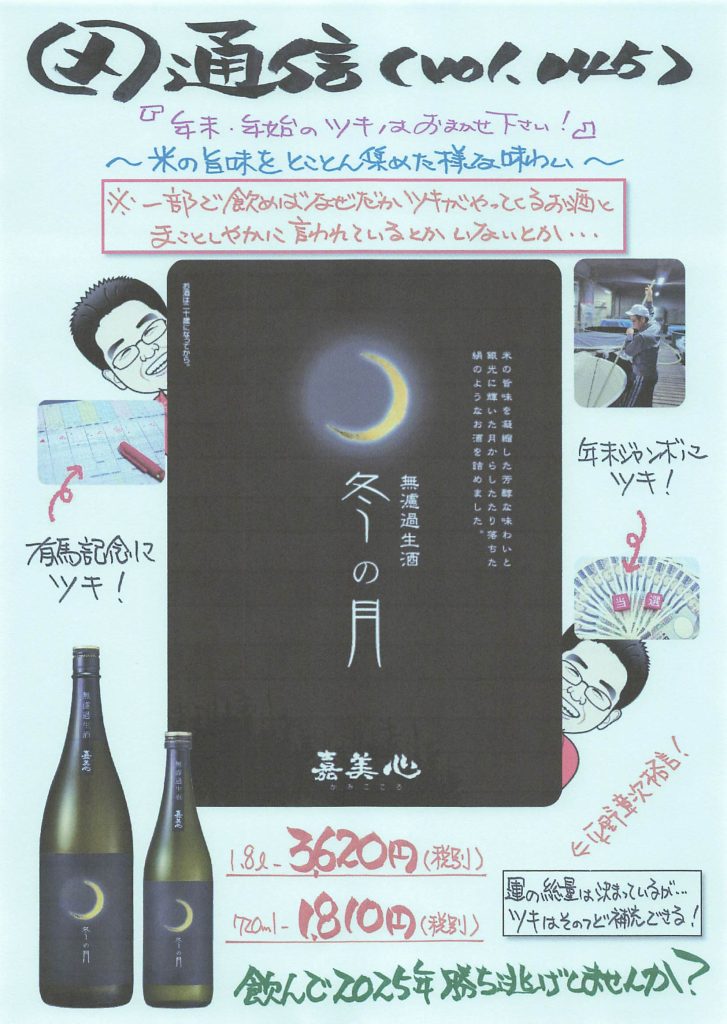 通信(vol.145)
『年末・年始のツキはおまかせ下さい！』
～米の旨味をとことん集めた様な味わい～
※一部で飲めばなぜだかツキがやってくるお酒と
まことしやかに言われているとかいないとか・・・
お酒は二十歳になってから。
米の旨味を凝縮した芳醇な味わいと
銀光に輝いた月からしたたり落ちた
絹のようなお酒を詰めました。
無濾過生酒
冬の月
嘉美心
かみこころ
有馬記念に
ツキ！
年末ジャンボに
ツキ！
当選
無濾過生酒
嘉美心
冬の月
無濾過生酒
嘉美心
冬の月
1.8ℓ- 3,620円(税別)
720ml- 1,810円(税別)
格言！
運の総量は決まっているが…
ツキはそのつど補充できる！
飲んで2025年勝ち逃げしませんか？